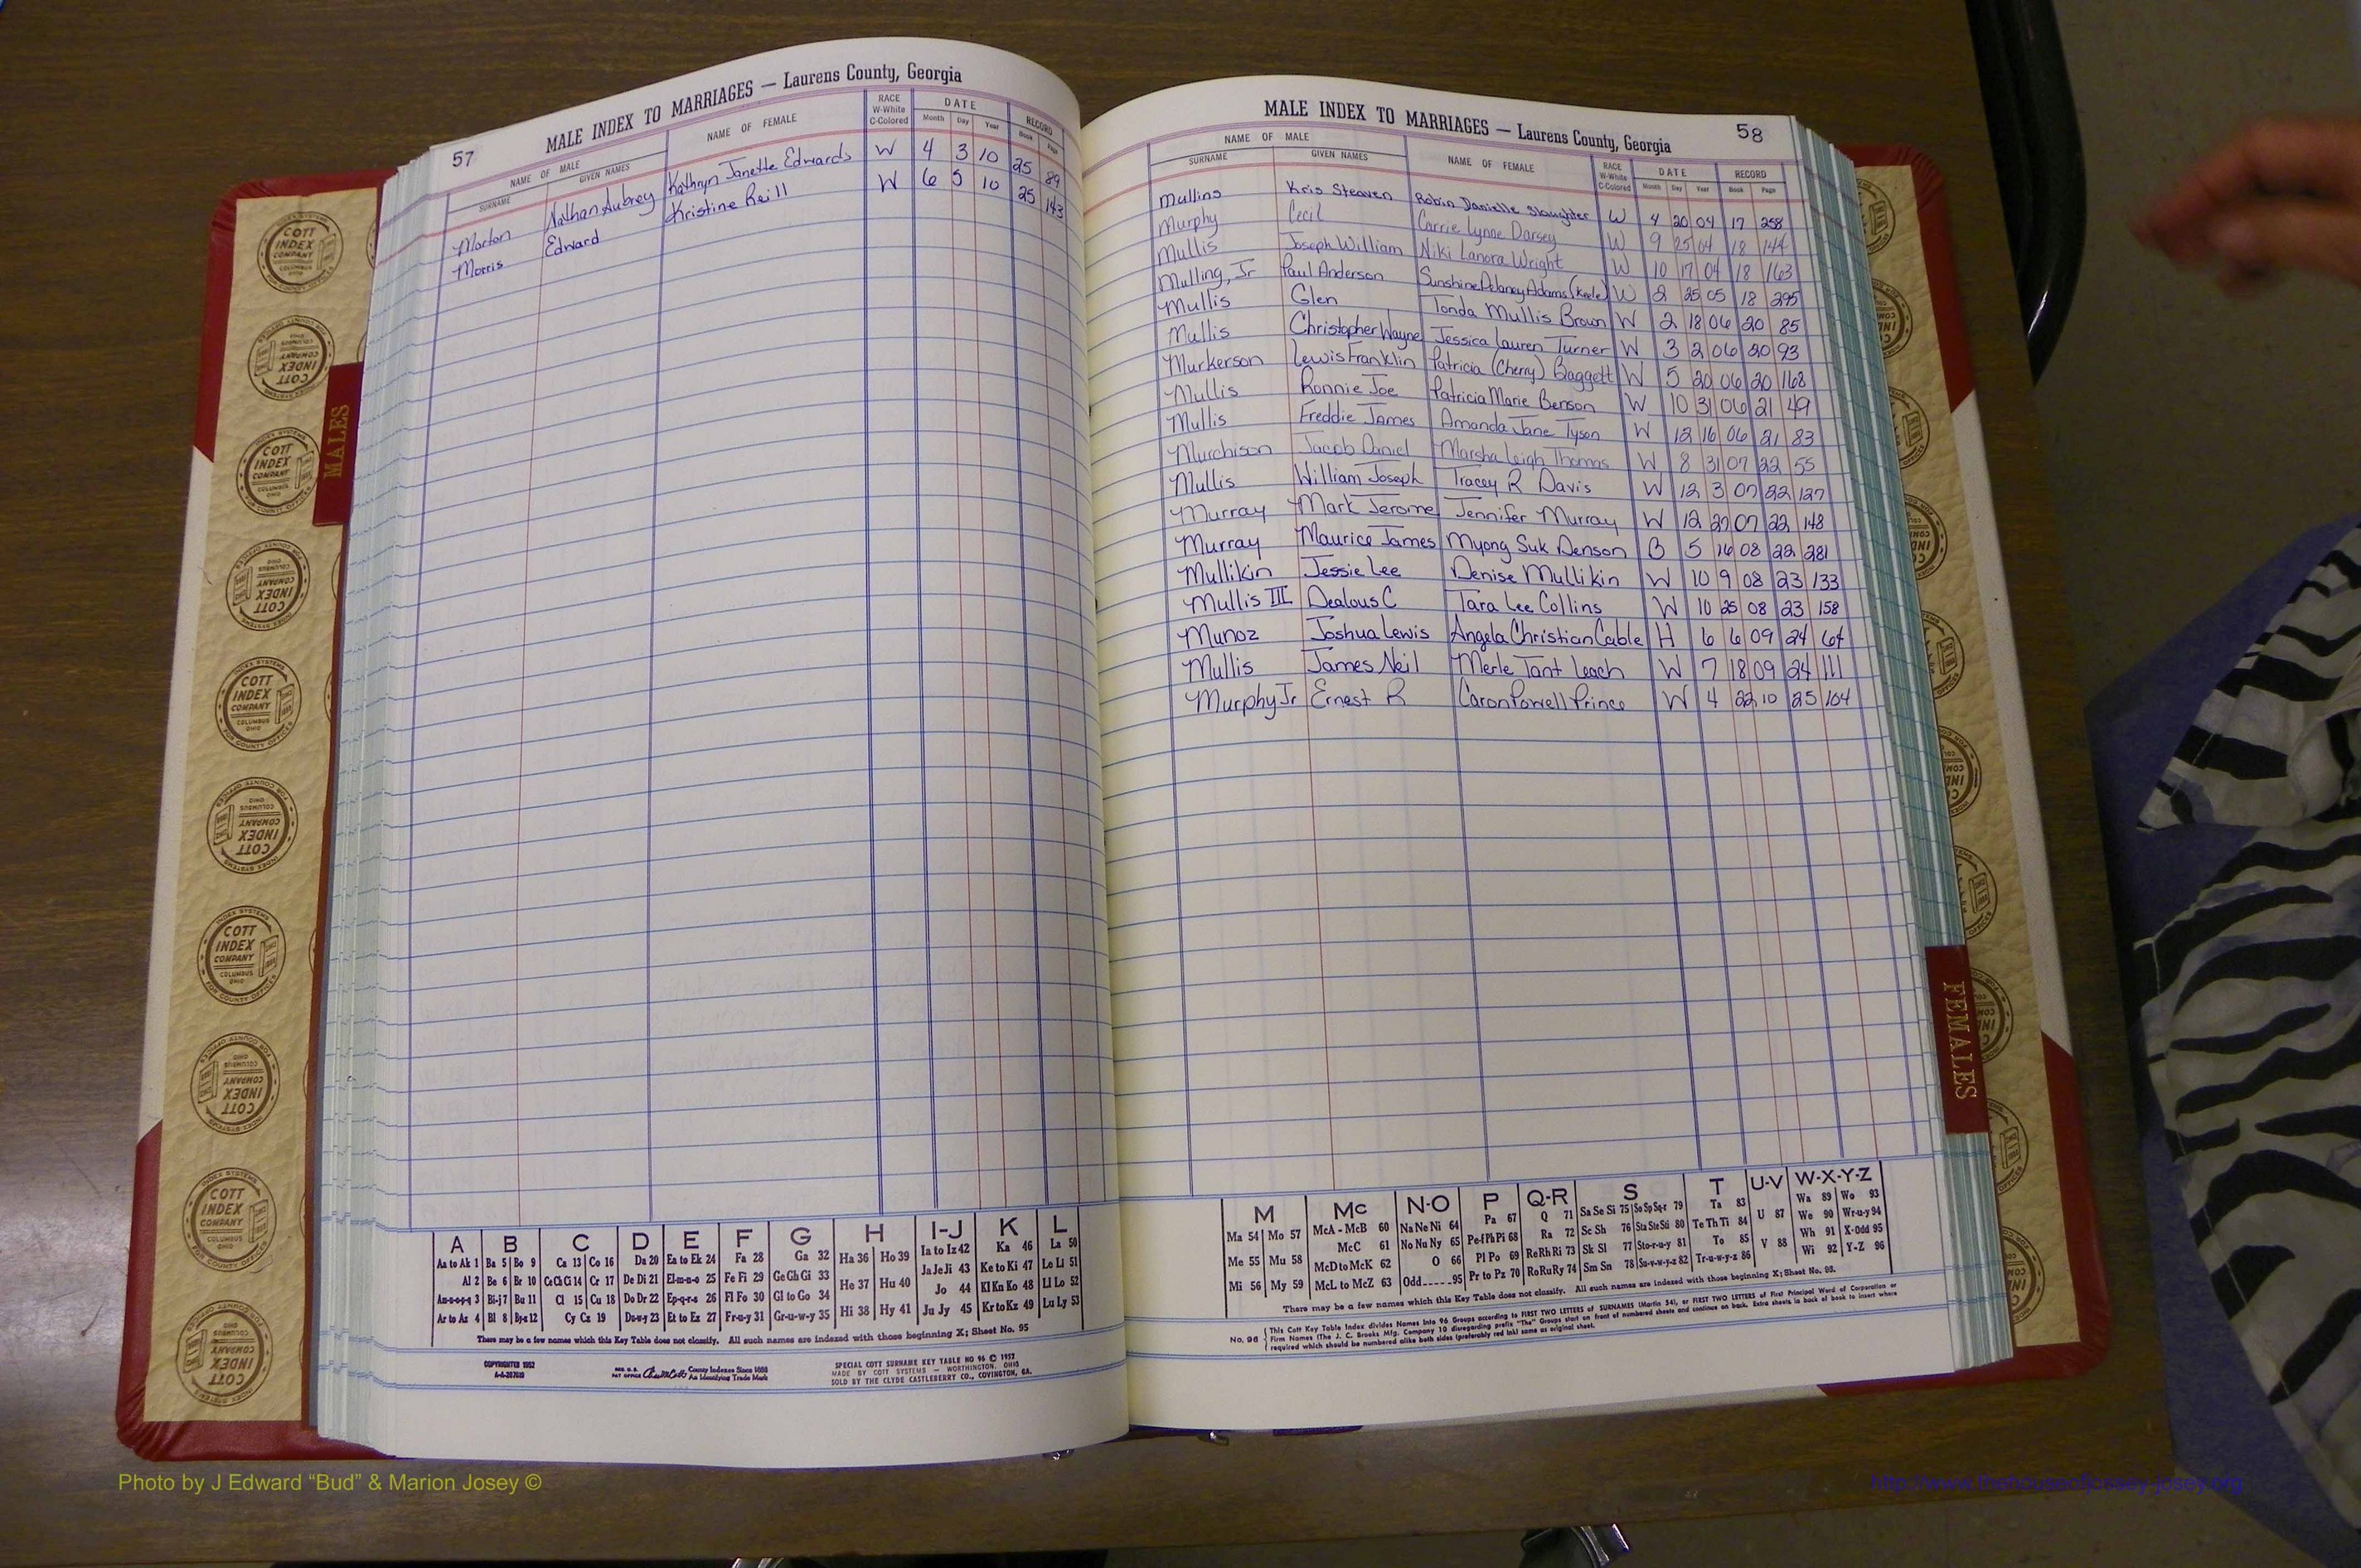 57
MALE INDEX TO MARRIAGES — Laurens County, Georgia
NAME OF MALE
SURNAME GIVEN NAMES NAME OF FEMALE RACE W-White C-Colored DATE Month Day Year RECORD Book Page
Morton Nathan Aubrey Kathryn Janette Edwards W 4 3 10 25 89
Morris Edward Kristine Reill W 6 5 10 25 143
A B C D E F G H I-J K L
Aa to Ak 1 Ba 5 Bo 9 Ca 13 Co 16 Da 20 Ea to Ek 24 Fa 28 Ga 32 Ha 36 Ho 39 Ia to Iz 42 Ka 46 La 50
Al 2 Be 6 Br 10 Ce Ch Ci 14 Cr 17 De Di 21 El-m-n-o 25 Fe Fi 29 Ge Gh Gi 33 He 37 Hu 40 Ja Je Ji 43 Ke to Ki 47 Le Li 51
An-u-o-p-q 3 Bi-j 7 Bu 11 Cl 15 Cu 18 Do Dr 22 Ep-q-r-s 26 Fl Fo 30 Gl to Go 34 Hi 38 Hy 41 Jo 44 Kl Kn Ko 48 Ll Lo 52
Ar to Az 4 Bl 8 By-z 12 Cy Cz 19 Du-w-y 23 Et to Ez 27 Fr-u-y 31 Gr-u-w-y 35 Ju Jy 45 Kr to Kz 49 Lu Ly 53
There may be a few names which this Key Table does not classify. All such names are indexed with those beginning X; Sheet No. 95
COPYRIGHTED 1952
County Indexes Since 1888
An Identifying Trade Mark
SPECIAL COTT SURNAME KEY TABLE NO 96 © 1952
MADE BY COTT SYSTEMS — WORTHINGTON, OHIO
SOLD BY THE CLYDE CASTLEBERRY CO., COVINGTON, GA.
MALE INDEX TO MARRIAGES — Laurens County, Georgia
58
NAME OF MALE
SURNAME GIVEN NAMES NAME OF FEMALE RACE W-White C-Colored DATE Month Day Year RECORD Book Page
Mullins Kris Steaven Robin Danielle Slaughter W 4 20 04 17 258
Murphy Cecil Carrie Lynne Darsey W 9 25 04 18 144
Mullis Joseph William Niki Lanora Wright W 10 17 04 18 163
Mulling, Jr Paul Anderson Sunshine Delaney Adams (Keele) W 2 25 05 18 295
Mullis Glen Tonda Mullis Brown W 2 18 06 20 85
Mullis Christopher Wayne Jessica Lauren Turner W 3 2 06 20 93
Murkerson Lewis Franklin Patricia (Cherry) Baggett W 5 20 06 20 168
Mullis Ronnie Joe Patricia Marie Benson W 10 31 06 21 49
Mullis Freddie James Amanda Jane Tyson W 12 16 06 21 83
Murchison Jacob Daniel Marsha Leigh Thomas W 8 31 07 22 55
Mullis William Joseph Tracey R Davis W 12 3 07 22 127
Murray Mark Jerome Jennifer Murray W 12 27 07 22 148
Murray Maurice James Myong Suk Denson B 5 16 08 22 281
Mullikin Jessie Lee Denise Mullikin W 10 9 08 23 133
Mullis III Dealous C Tara Lee Collins W 10 25 08 23 158
Munoz Joshua Lewis Angela Christian Cable H 6 6 09 24 64
Mullis James Neil Merle Tant Leach W 7 18 09 24 111
Murphy Jr Ernest R Caron Powell Prince W 4 22 10 25 104
M Mc N-O P Q-R S T U-V W-X-Y-Z
Ma 54 Mo 57 McA - McB 60 Na Ne Ni 64 Pa 67 Q 71 Sa Se Si 75 So Sp Sq-r 79 Ta 83 U 87 Wa 89 Wo 93
Me 55 Mu 58 McC 61 No Nu Ny 65 Pe-f Ph Pi 68 Ra 72 Sc Sh 76 Sta Ste Sti 80 Te Th Ti 84 V 88 We 90 Wr-u-y 94
Mi 56 My 59 McD to McK 62 O 66 Pl Po 69 Re Rh Ri 73 Sk Sl 77 Sto-r-u-y 81 To 85 Wh 91 X-Odd 95
McL to McZ 63 Odd 95 Pr to Pz 70 Ro Ru Ry 74 Sm Sn 78 Su-v-w-y-z 82 Tr-u-w-y-z 86 Wi 92 Y-Z 96
There may be a few names which this Key Table does not classify. All such names are indexed with those beginning X; Sheet No. 95.
No. 96 This Cott Key Table Index divides Names into 96 Groups according to FIRST TWO LETTERS of SURNAMES (Martin 54), or FIRST TWO LETTERS of First Principal Word of Corporation or
Firm Names (The J. C. Brooks Mfg. Company 10 disregarding prefix "The" Groups start on front of numbered sheets and continue on back. Extra sheets in back of book to insert where
required which should be numbered alike both sides (preferably red ink) same as original sheet.
MALES
FEMALES
COTT INDEX COMPANY
COLUMBUS OHIO
INDEX SYSTEMS
FOR COUNTY OFFICES
Photo by J Edward “Bud” & Marion Josey ©